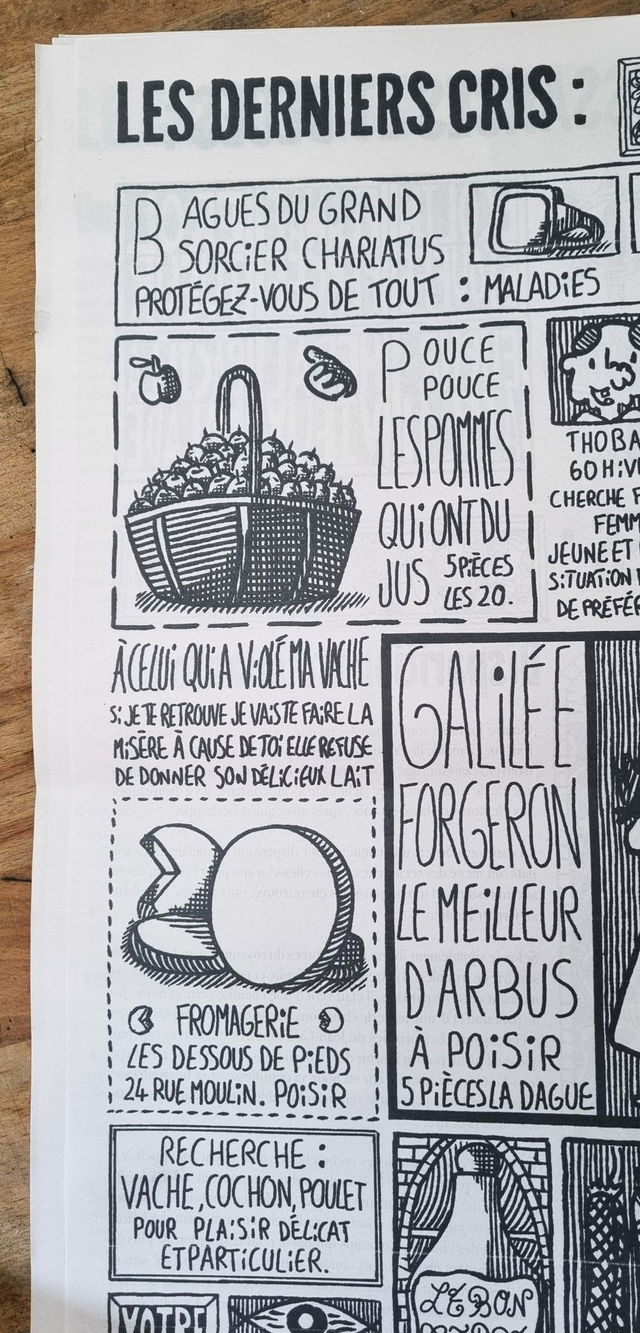 LES DERNIERS CRIS :
BAGUES DU GRAND
SORCIER CHARLATUS
PROTÉGEZ-VOUS DE TOUT : MALADIES
POUCE
POUCE
LES POMMES
QUI ONT DU
JUS 5 PIÈCES
LES 20.
THOBA
60 HiV
CHERCHE F
FEMM
JEUNE ET
SITUATION
DE PRÉFÉ
À CELUI QUI A VIOLÉ MA VACHE
SI JE TE RETROUVE JE VAIS TE FAIRE LA
MISÈRE À CAUSE DE TOI ELLE REFUSE
DE DONNER SON DÉLICIEUX LAIT
GALILÉE
FORGERON
LE MEILLEUR
D'ARBUS
À POISIR
5 PIÈCES LA DAGUE
FROMAGERIE
LES DESSOUS DE PIEDS
24 RUE MOULIN. POISIR
RECHERCHE :
VACHE, COCHON, POULET
POUR PLAISIR DÉLICAT
ET PARTICULIER.
LE BON
VOTRE